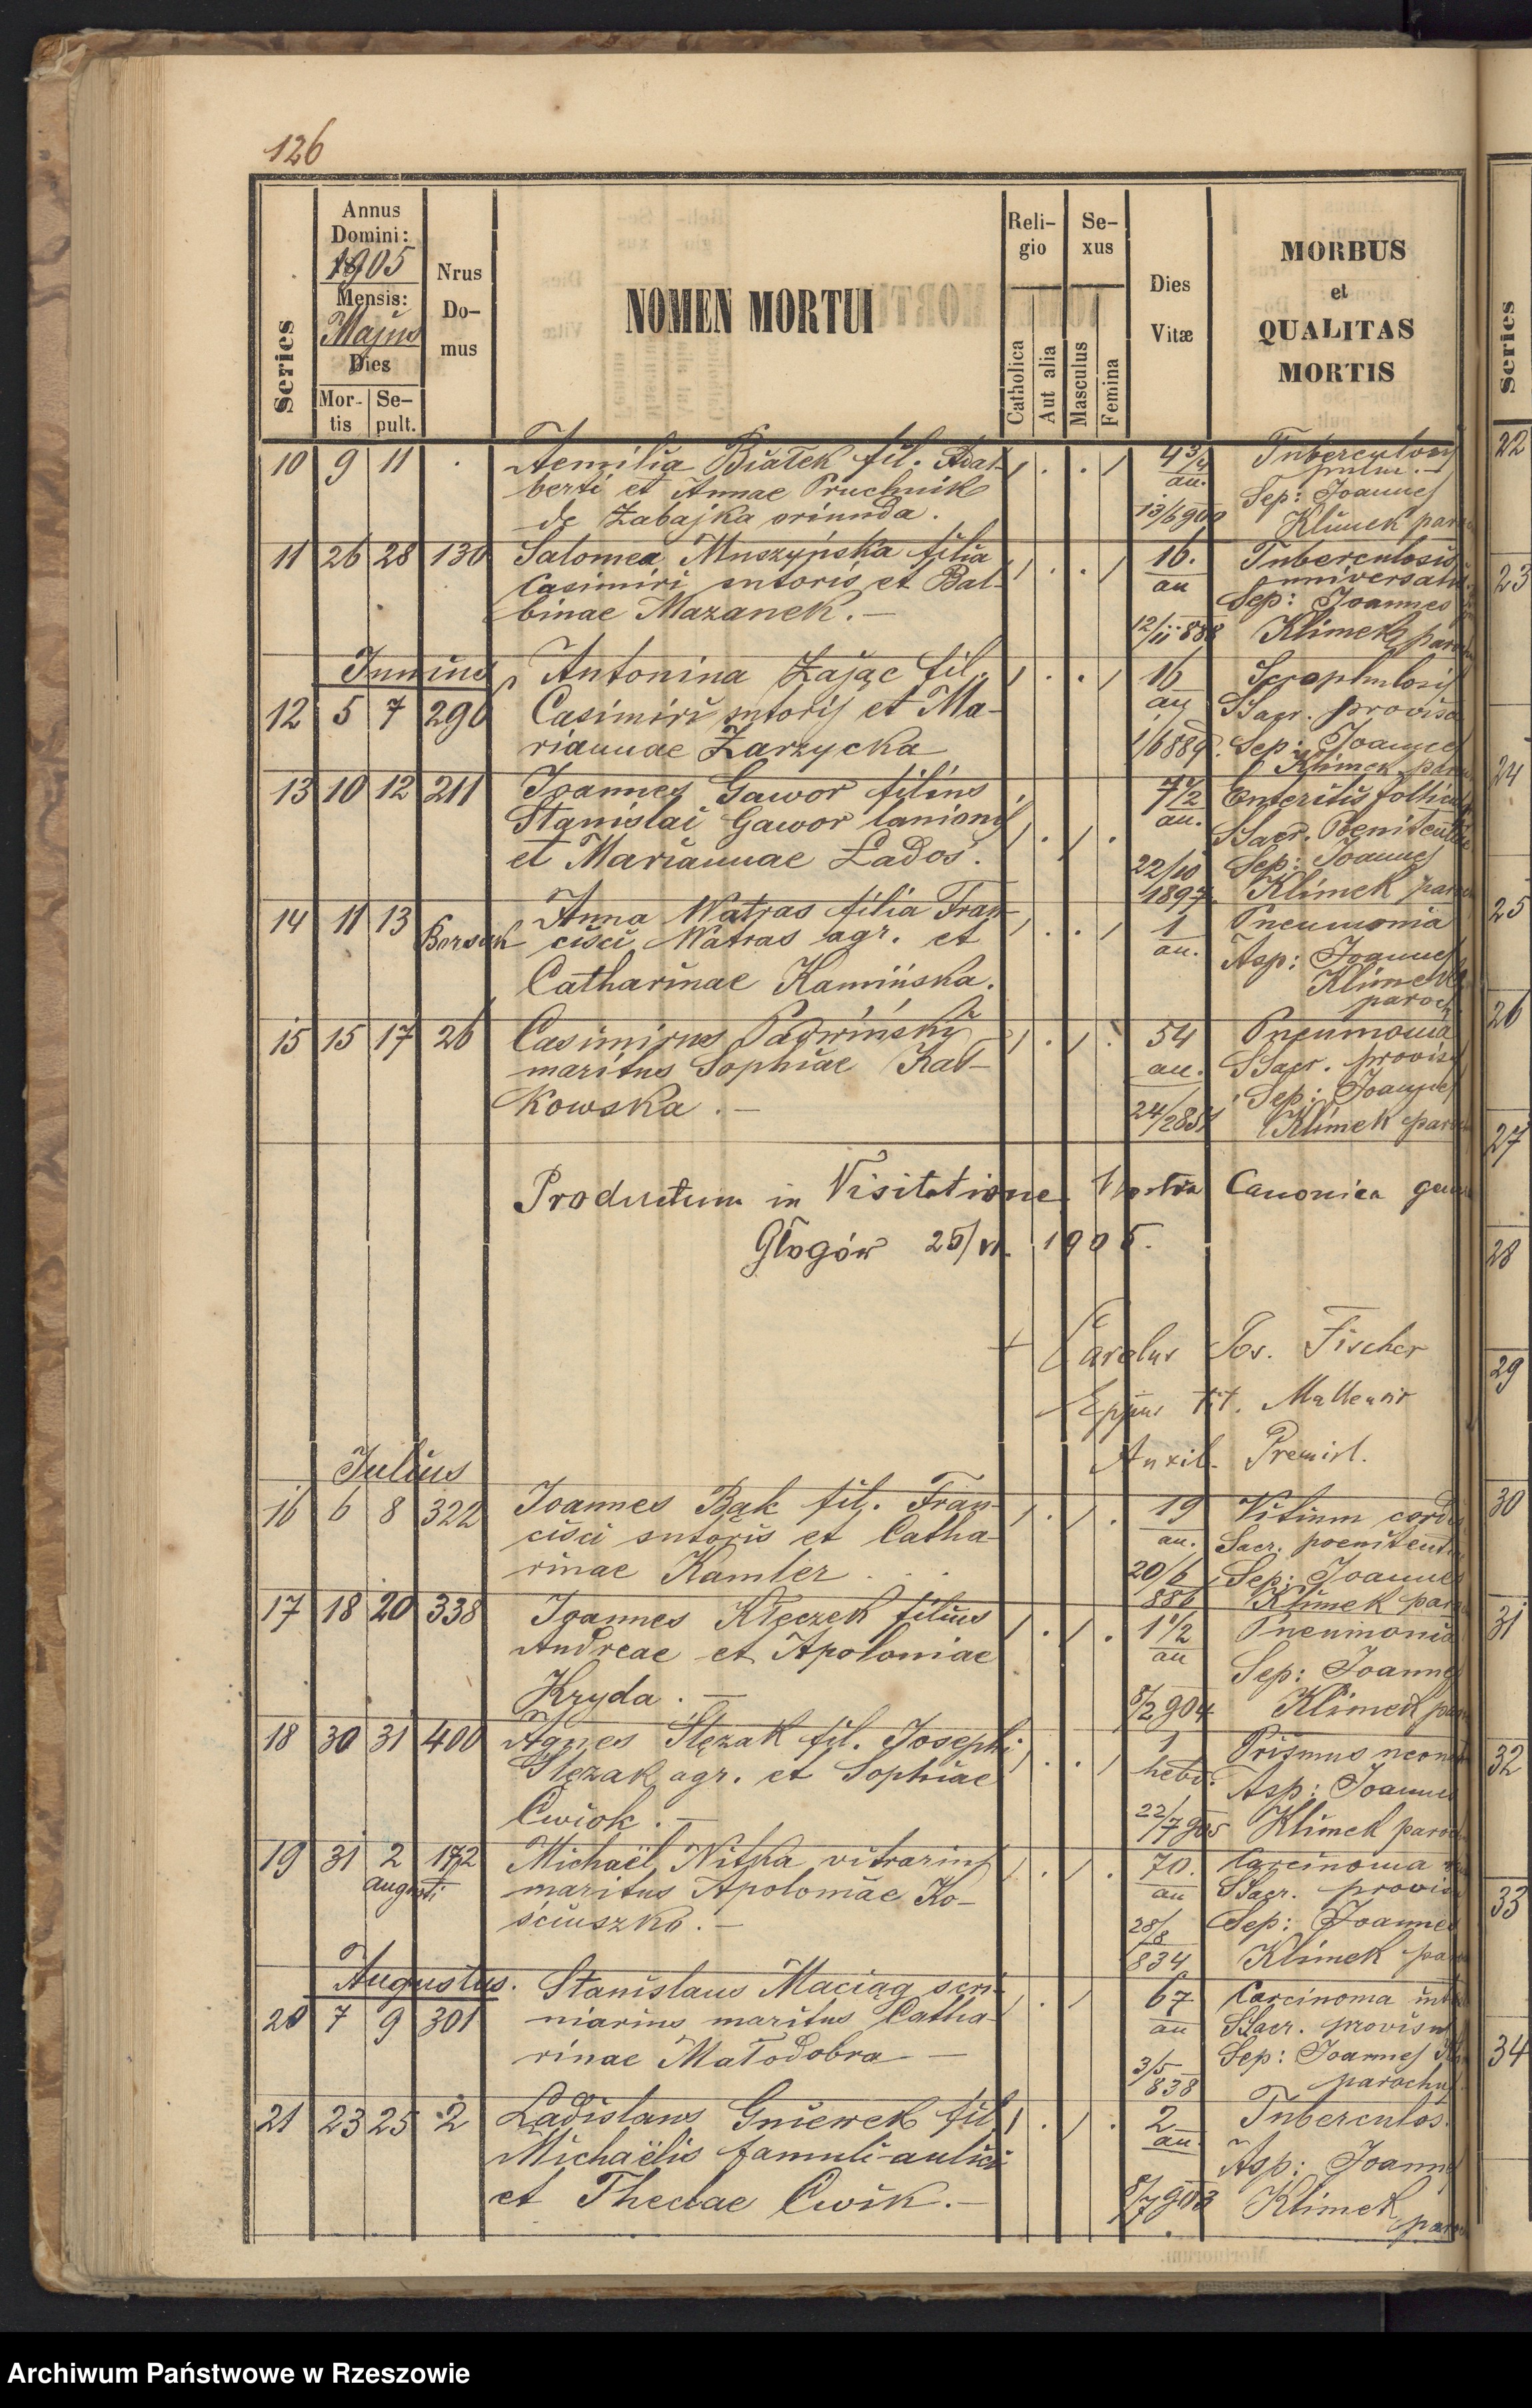 126
Annus
Domini:
1905
Mensis:
Majus
Dies
Mor-
tis
Se-
pult.
Series
Nrus
Do-
mus
NOMEN MORTUI
Reli-
gio
Catholica
Aut alia
Se-
xus
Masculus
Femina
Dies
Vitæ
MORBUS
et
QUALITAS
MORTIS
10 9 11 . Aemilia Białek fil. Adal-
berti et Annae Pruchnik
de Zabajka oriunda.
4 3/4
an.
Sep: Joannes
Klimek
11 26 28 130 Salomea Muszyńska filia
Casimiri sutoris et Bal-
binae Mazanek. —
16.
an
12/11 888
Tuberculosis
universalis
Sep: Joannes
Klimek
Junius
12 5 7 290 Antonina Zając fil.
Casimiri sutoris et Ma-
riannae Zarzycka
16
an
1/6 889.
Scrophulosis
SSacr. provisa
Sep: Joannes
Klimek
13 10 12 211 Joannes Gawor filius
Stanislai Gawor lanionis
et Mariannae Lados.
7 1/2
an.
22/10
1897.
Enteritis
SSacr. Poenitentiae
Sep: Joannes
Klimek
14 11 13 Borsuk Anna Watras filia Fran-
cisci Watras agr. et
Catharinae Kamińska.
1
an.
Pneumonia
Asp: Joannes
Klimek
paroch
15 15 17 26 Casimirus
maritus Sophiae Rat-
kowska. —
54
an.
Pneumonia
SSacr. provis
Sep: Joannes
Klimek
Productum in Visitatione Canonica
Głogów 25/VI. 1905.
+ Carolus Jos. Fischer
Eppus tit. Mallensis
Auxil. Premisl.
Julius
16 6 8 322 Joannes Bąk fil. Fran-
cisci sutoris et Catha-
rinae Kamler
19
an.
20/6
886
Vitium cordis
Sacr. poenitentiae
Sep: Joannes
Klimek
17 18 20 338 Joannes Kłeczek filius
Andreae et Apoloniae
Hryda. —
1 1/2
an
8/2 904
Pneumonia
Sep: Joannes
Klimek
18 30 31 400 Agnes Ślęzak fil. Josephi
Ślęzak agr. et Sophiae
Cwiok. —
1
hebd.
22/7 905
Asp: Joannes
Klimek paroch
19 31 2 172
augusti
Michaël Nitka vitrarius
maritus Apoloniae Ko-
ściuszko. —
70.
an
28/8
834
Carcinoma
SSacr. provis
Sep: Joannes
Klimek
Augustus.
20 7 9 301 Stanislaus Maciąg scri-
niarius maritus Catha-
rinae Małodobra —
67
an
3/5
838
Carcinoma
SSacr. provisus
Sep: Joannes
parochus
21 23 25 2 Ladislaus Gniewek fil.
Michaëlis famuli aulici
et Theclae Cwik. —
2
an.
8/7 903
Tuberculos.
Asp: Joannes
Klimek
Series
22
23
24
25
26
27
28
29
30
31
32
33
34
Archiwum Państwowe w Rzeszowie